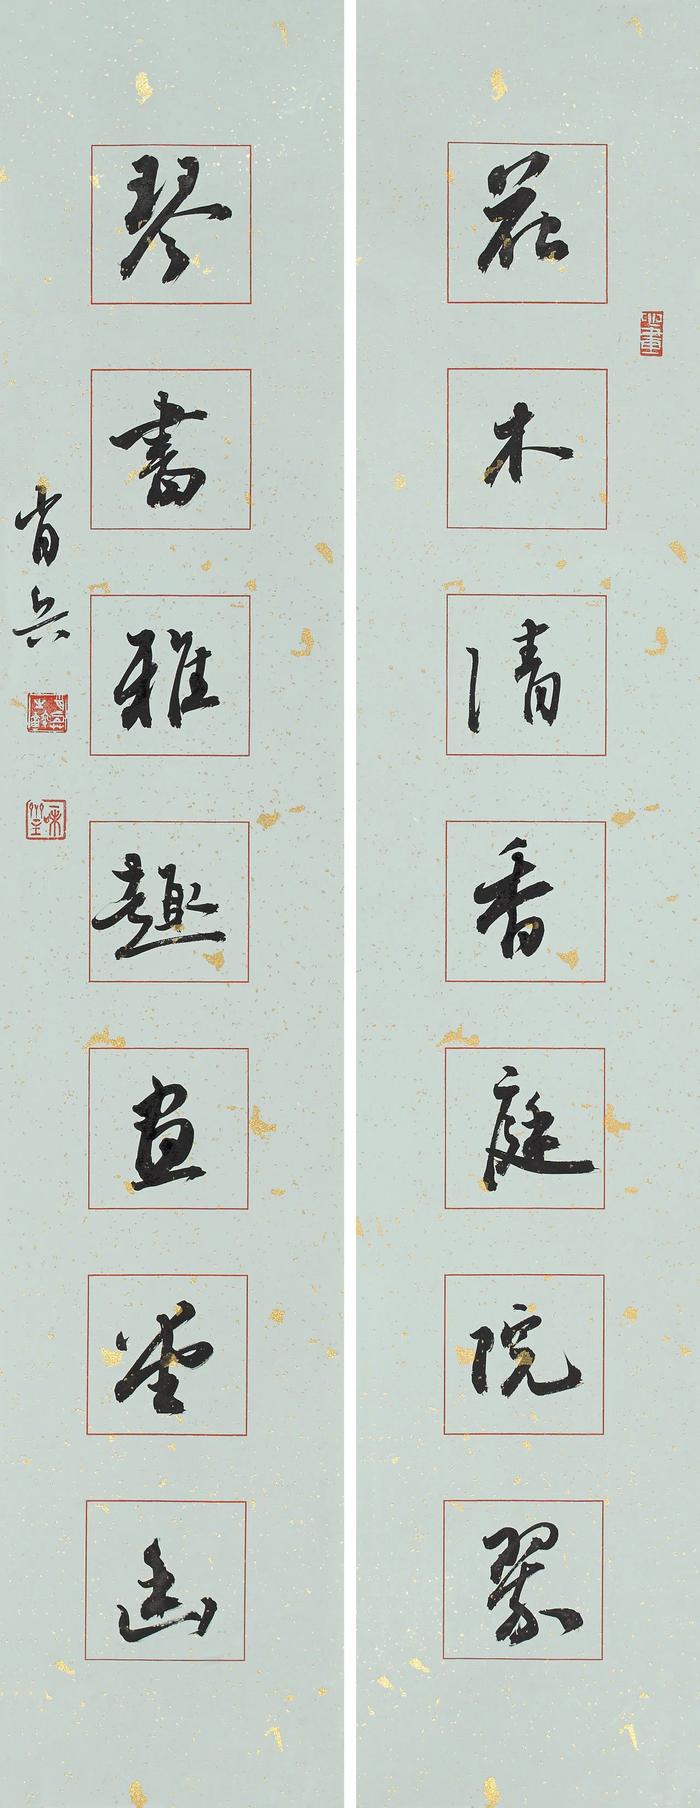 花木清香庭院翠
琴書雅趣畫堂幽
肖兵